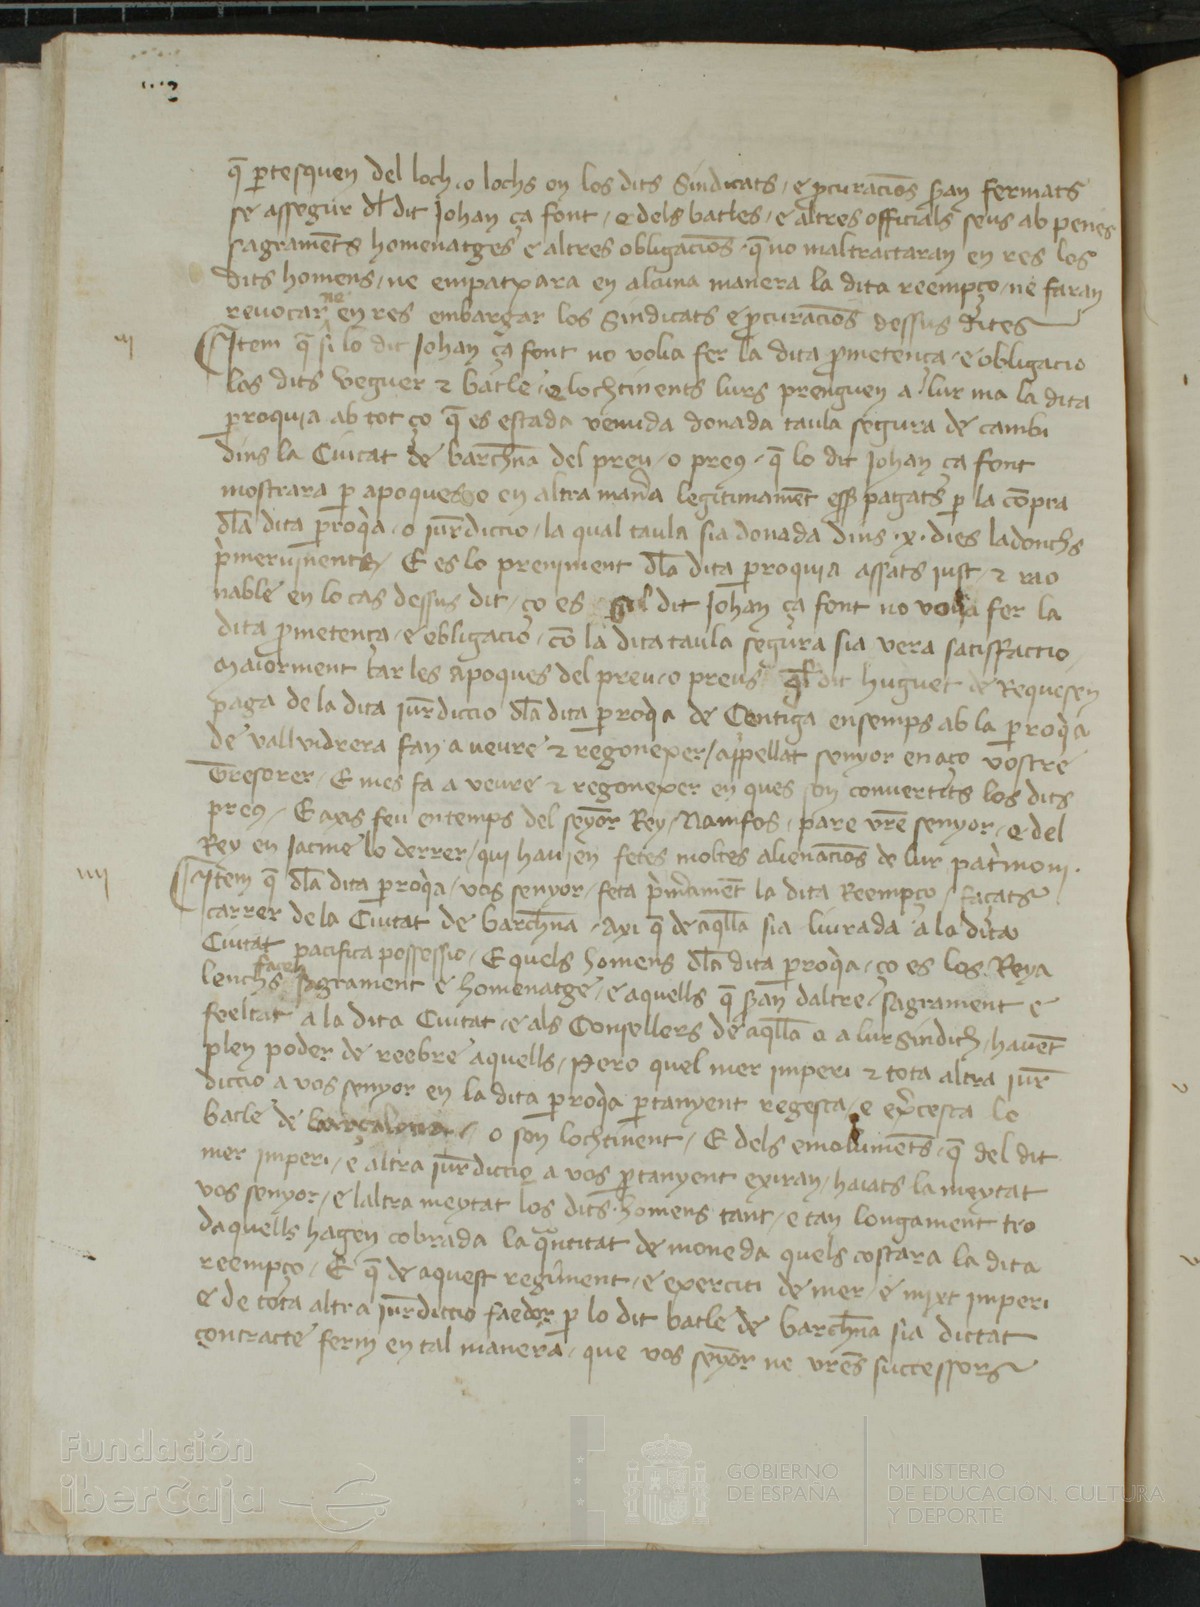 q̄ ꝑtesquen del loch o lochs on los dits Sindicats / e ꝓcuracions̄ s̄an fermats
se assegur dl̄ dit Johan ça font / e dels batles / e altres officials seus ab penes
sagramēts homenatges e altres obligacions̄ · q̄ no maltractaran en res los
dits homens / ne empatxara en alcuna manera la dita reempço / ne faran
reuocar ne en res embargar los Sindicats e ꝓcuracions̄ dessus dites
iii
Item q̄ si lo dit Johan ça font no volia fer la dita ꝓmetença / e obligacio
los dits Veguer ⁊ batle / o lochtinents lurs prenguen a lur ma la dita
ꝑroquia ab tot ço q̄ es estada venuda donada taula segura de cambi
dins la Ciutat de barch̄na del preu / o preus · q̄ lo dit Johan ça font
mostrara ꝑ apoques o en altra man̄a legitimamēt ess̄ pagats ꝑ la cōpra
dl̄a dita ꝑroq̄a / o iur̄diccio / la qual taula sia donada dins · x · dies ladonchs
p̄meruinents / E es lo preniment dl̄a dita ꝑroquia assats iust / ⁊ rao
nable en lo cas dessus dit / ço es sil dit Johan ça font no volia fer la
dita ꝓmetença / e obligacio / cō la dita taula segura sia vera satisffactio /
Maiorment car les apoques del preu / o preus ql̄ dit huguet de Requesen
paga de la dita iur̄diccio dl̄a dita ꝑroq̄a de Centiga ensemps ab la ꝑroq̄a
de vallvidrera fan a ueure ⁊ regonexer / appellat senyor en aço vostre
Tresorer / E mes fa a veure ⁊ regonexer en ques son conuertits los dits
preus / E axis feu en temps del seyōr Rey / Namfos / pare vr̄e senyor / e del
Rey en Jacme lo derrer / qui hauien fetes moltes alienacions̄ de lur pat̄moni ·
iiii
Item q̄ dl̄a dita ꝑroq̄a / vos senyor / feta la dita Reempço / façats
carrer de la Ciutat de barch̄na / axi q̄ de aql̄la sia liurada a la dita
Ciutat pacifica possessio / E quels homens dl̄a dita ꝑroq̄a / ço es los Reya
lenchs facen sagrament e homenatge / e aquells q̄ s̄an daltre / sagrament e
feeltat a la dita Ciutat / e als Consellers de aql̄la o a lur Sindich / hauēt
plen poder de reebre aquells / Pero quel mer imperi ⁊ tota altra iur̄
diccio a vos senyor en la dita ꝑroq̄a ꝑtanyent regesca / e ex̄cesca lo
batle de barçalona / o son lochtinent / E dels emolumēts / q̄ del dit
mer imperi / e altra iur̄diccio a vos ꝑtanyent exiran / haiats la meytat
vos senyor / e laltra meytat los dits homens tant / e tan longament tro
daquells hagen cobrada la quantitat de moneda quels costara la dita
reempço / E q̄ de aquest regiment / e exerciti de mer / e mixt imperi
e de tota altra iur̄diccio faedor ꝑ lo dit batle de barch̄na sia dictat
contracte ferm en tal manera / que vos seyōr ne vr̄es successors
Fundación
iberCaja
GOBIERNO
DE ESPAÑA
MINISTERIO
DE EDUCACIÓN, CULTURA
Y DEPORTE